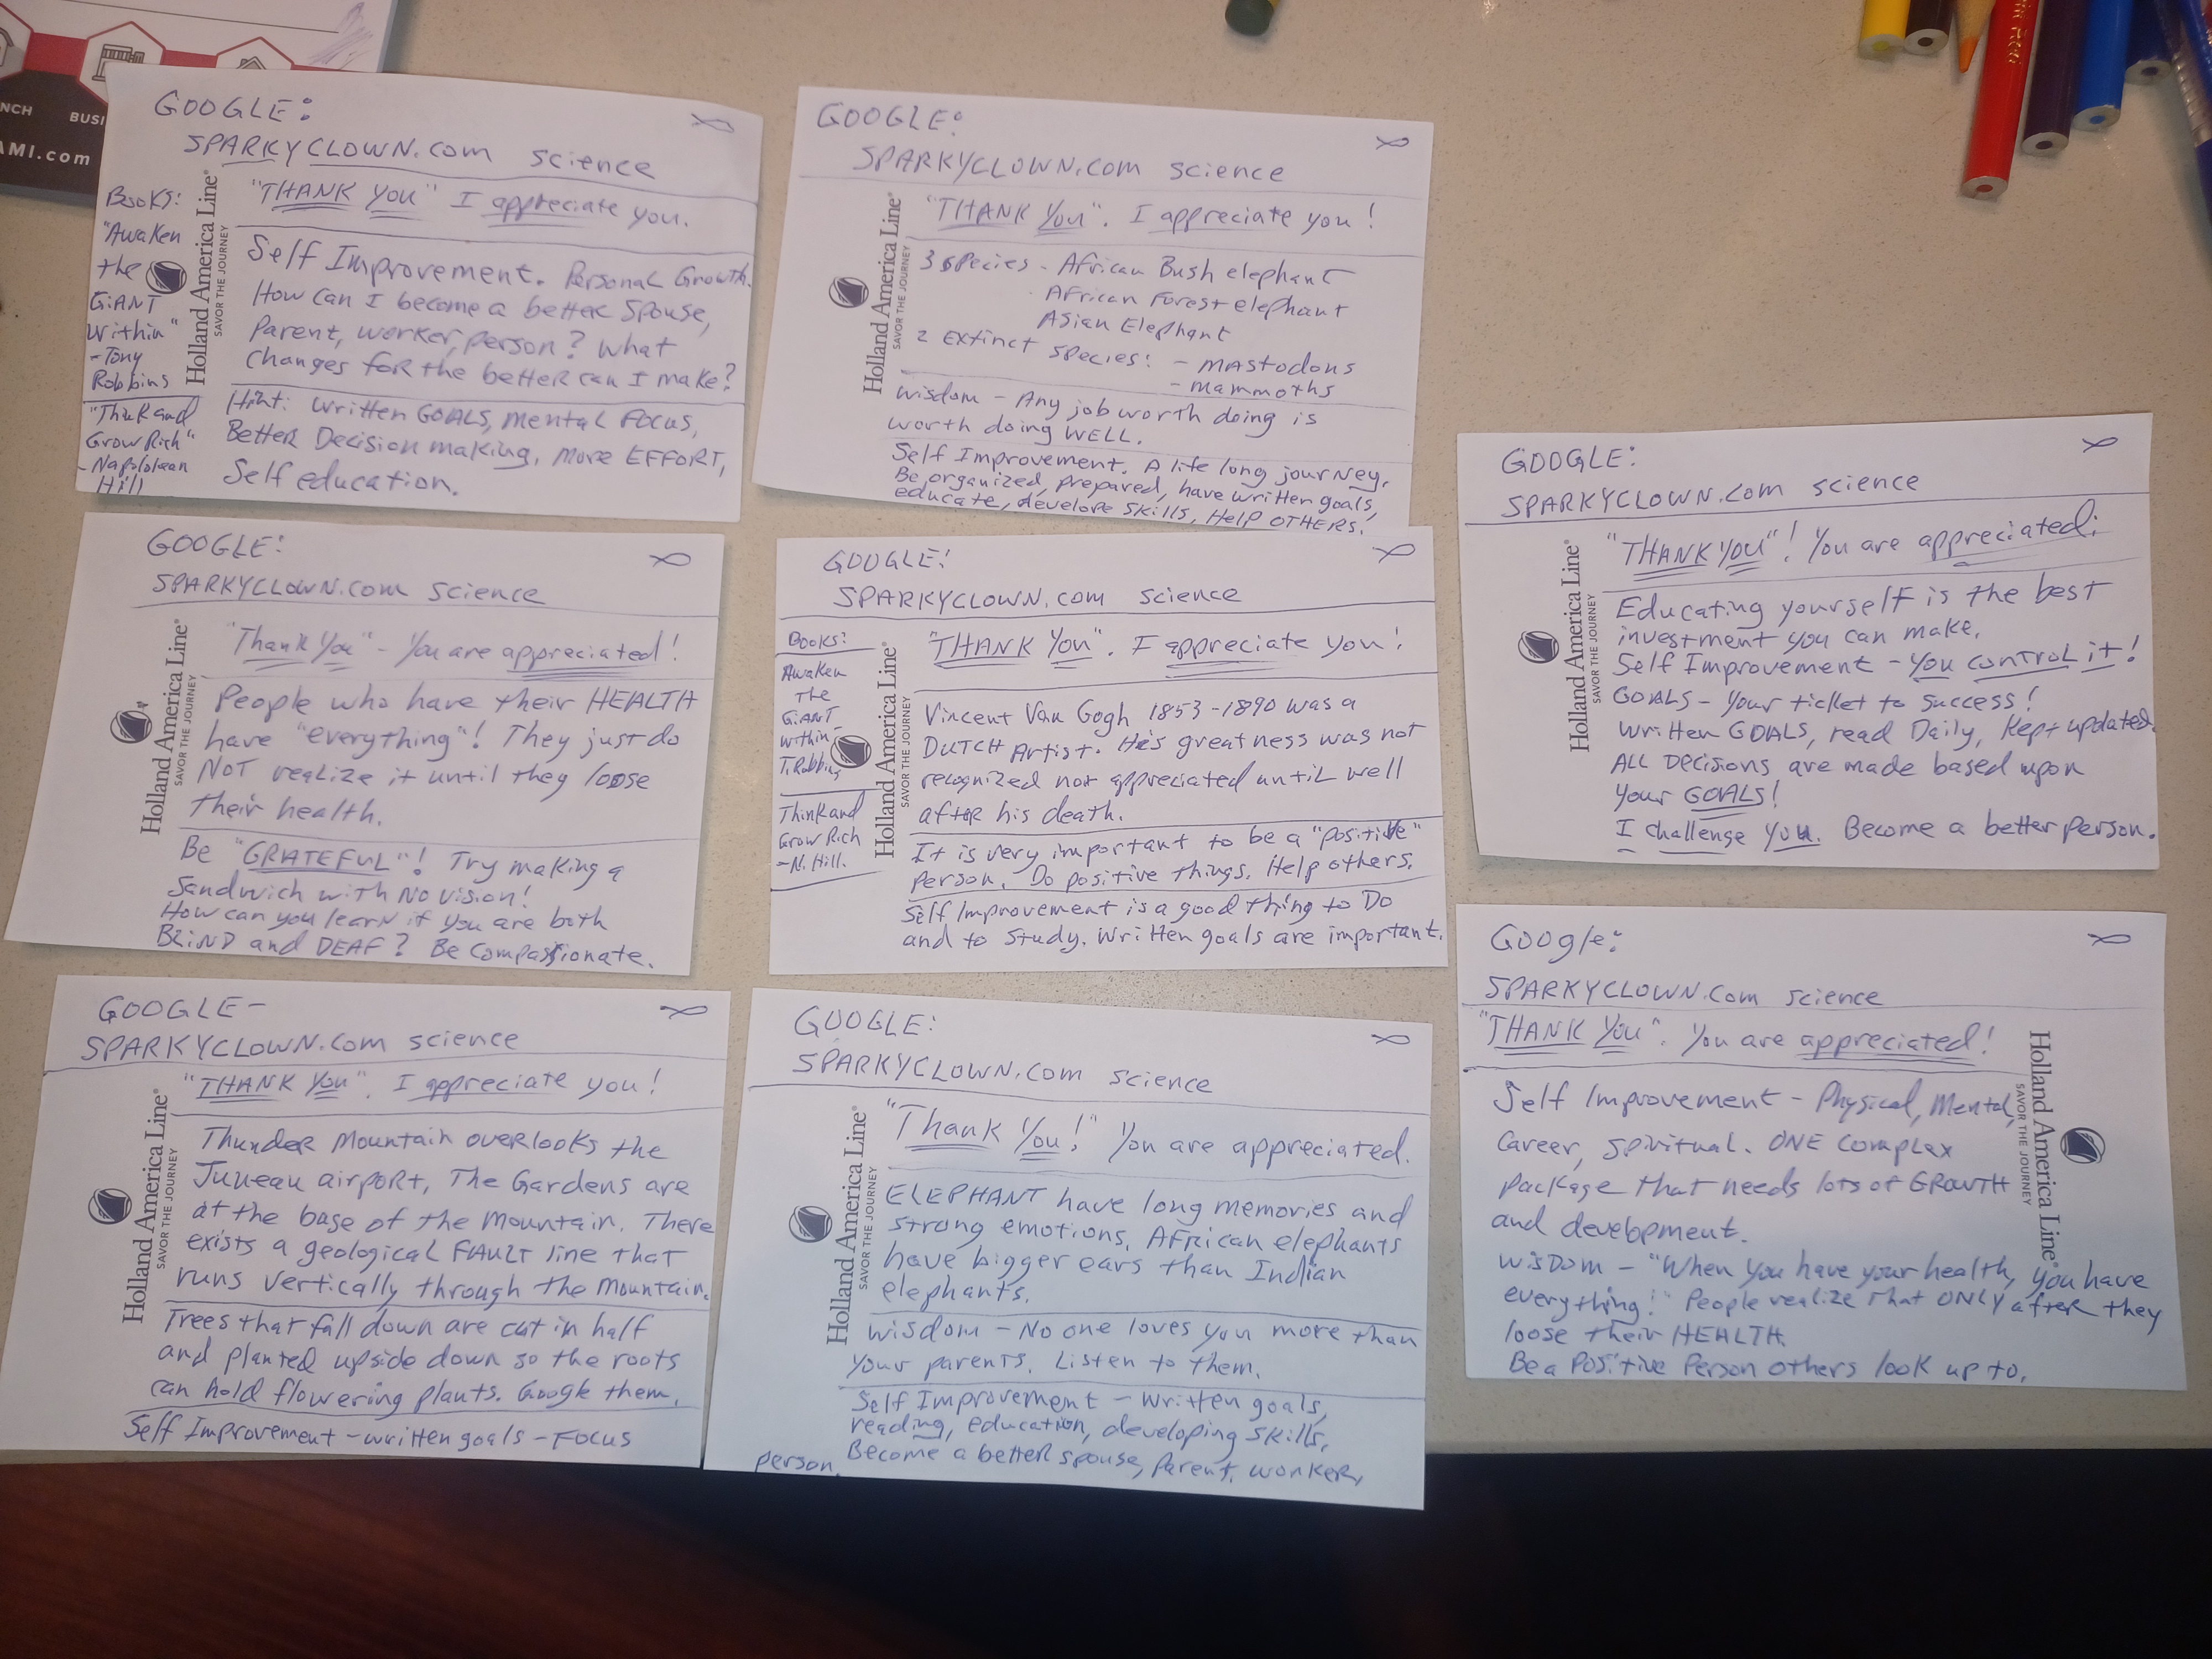 NCH BUSI
AMI.com
GOOGLE:
SPARKYCLOWN.com science
"THANK YOU" I appreciate you.
Books:
"Awaken
the
GiANT
Within"
-Tony
Robbins
"Think and
Grow Rich"
-Napololean
Hill
Holland America Line®
SAVOR THE JOURNEY
Self Improvement. Personal Growth.
How can I become a better spouse,
Parent, worker, person? What
changes for the better can I make?
Hint: written GOALS, mental FOCUS,
Better Decision making, more EFFORT,
Self education.
GOOGLE:
SPARKYCLOWN.com science
"THANK YOU". I appreciate you!
Holland America Line®
SAVOR THE JOURNEY
3 species - African Bush elephant
African Forest elephant
Asian Elephant
2 Extinct species: - MAStodons
- mammoths
wisdom - Any job worth doing is
worth doing WELL.
Self Improvement. A life long journey.
Be organized, prepared, have written goals,
educate, develope skills, Help OTHERS!
GOOGLE:
SPARKYCLOWN.com science
"Thank You" - You are appreciated!
Holland America Line®
SAVOR THE JOURNEY
People who have their HEALTH
have "everything"! They just do
NOT realize it until they loose
their health.
Be "GRATEFUL"! Try making a
Sandwich with No vision!
How can you learn if you are both
BLIND and DEAF? Be Compassionate.
GOOGLE!
SPARKYCLOWN.com science
Books:
Awaken
The
GiANT
within-
T. Robbins
Think and
Grow Rich
-N. Hill.
Holland America Line®
SAVOR THE JOURNEY
"THANK YOU". I appreciate you!
Vincent Van Gogh 1853-1890 was a
DUTCH Artist. His greatness was not
recognized nor appreciated until well
after his death.
It is very important to be a "positive"
person. Do positive things. Help others.
Self Improvement is a good thing to Do
and to study. Written goals are important.
GOOGLE:
SPARKYCLOWN.com science
"THANK YOU"! You are appreciated!
Holland America Line®
SAVOR THE JOURNEY
Educating yourself is the best
investment you can make.
Self Improvement - you control it!
GOALS - Your ticket to success!
Written GOALS, read Daily, Kept updated.
ALL DECISIONS are made based upon
your GOALS!
I challenge you. Become a better person.
GOOGLE-
SPARKYCLOWN.com science
"THANK YOU". I appreciate you!
Holland America Line®
SAVOR THE JOURNEY
Thunder Mountain overlooks the
Juneau airport, The Gardens are
at the base of the mountain. There
exists a geological FAULT line that
runs vertically through the mountain.
Trees that fall down are cut in half
and planted upside down so the roots
can hold flowering plants. Google them.
Self Improvement - written goals - FOCUS
GOOGLE:
SPARKYCLOWN.com science
"Thank You!" You are appreciated.
Holland America Line®
SAVOR THE JOURNEY
ELEPHANT have long memories and
strong emotions. African elephants
have bigger ears than Indian
elephants.
wisdom - No one loves you more than
your parents. Listen to them.
Self Improvement - written goals,
reading, education, developing skills,
Become a better spouse, parent, worker,
person.
Google:
SPARKYCLOWN.com science
"THANK YOU". You are appreciated!
Holland America Line®
SAVOR THE JOURNEY
Self Improvement - Physical, Mental,
Career, spiritual. ONE complex
package that needs lots of GROWTH
and development.
wisDom - "When you have your health, you have
everything!" People realize that ONLY after they
loose their HEALTH.
Be a Positive Person others look up to.